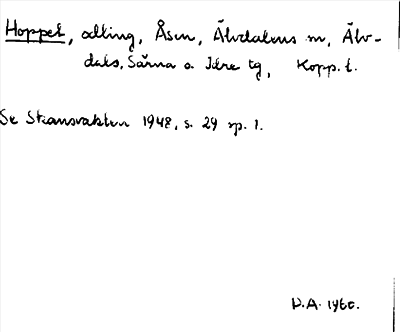 Hoppet, allting, Åsen, Älvdalens sn, Älv-
dals, Särna o. Idre tg, Kopp. l.
Se Skansvakten 1948, s. 29 sp. 1.
D.A. 1960.